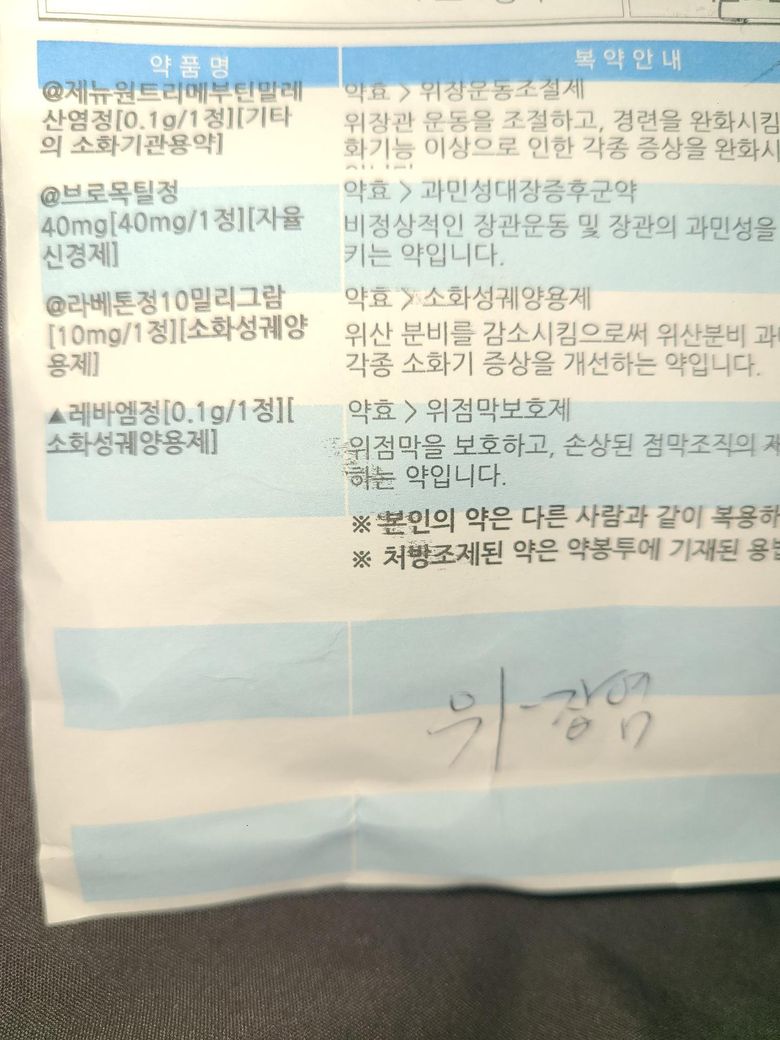 약품명 복약안내
@제뉴원트리메부틴말레 약효 > 위장운동조절제
산염정[0.1g/1정][기타 위장관 운동을 조절하고, 경련을 완화시킴
의 소화기관용약] 화기능 이상으로 인한 각종 증상을 완화시
@브로목틸정 약효 > 과민성대장증후군약
40mg[40mg/1정][자율 비정상적인 장관운동 및 장관의 과민성을
신경제] 키는 약입니다.
@라베톤정10밀리그람 약효 > 소화성궤양용제
[10mg/1정][소화성궤양 위산 분비를 감소시킴으로써 위산분비
용제] 각종 소화기 증상을 개선하는 약입니다.
▲레바엠정[0.1g/1정][ 약효 > 위점막보호제
소화성궤양용제] 위점막을 보호하고, 손상된 점막조직의
하는 약입니다.
※ 본인의 약은 다른 사람과 같이 복용하
※ 처방조제된 약은 약봉투에 기재된
위-장염